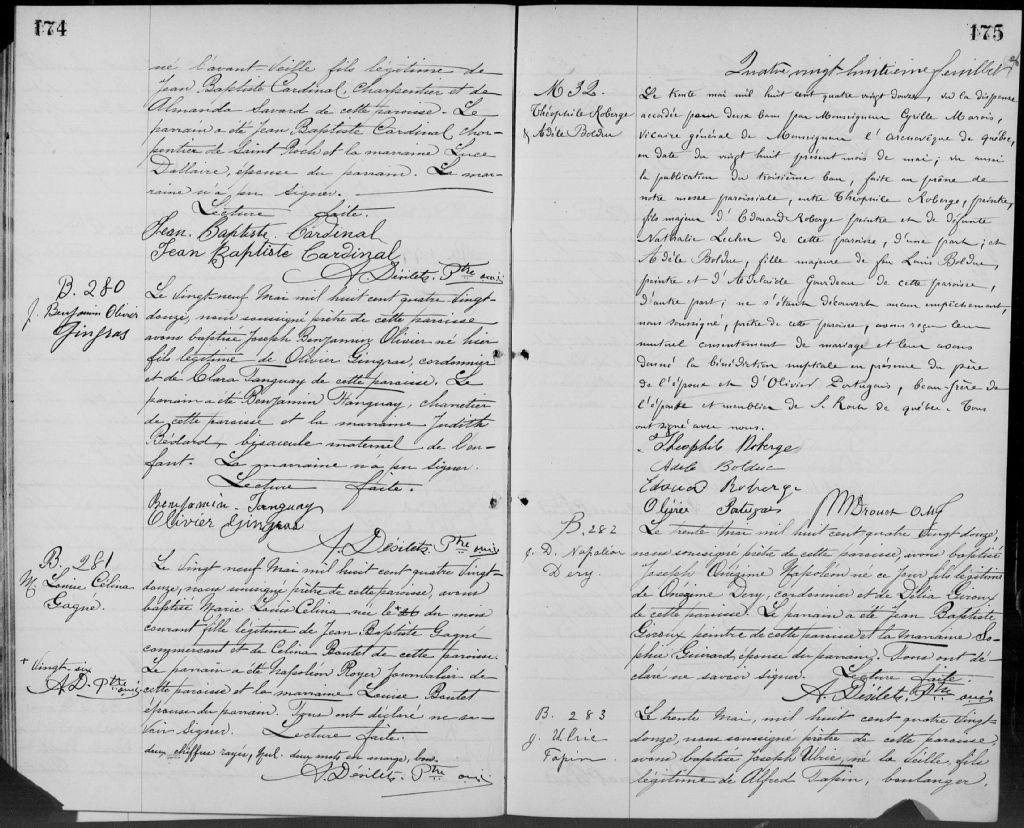 174
né l'avant-veille fils légitime de
Jean Baptiste Cardinal, Charpentier et de
Almanda Savard de cette paroisse. Le
parrain a été Jean Baptiste Cardinal char-
pentier de Saint Roch et la marraine Luce
Dallaire, épouse du parrain. La mar-
raine n'a pu signer.
Lecture faite.
Jean-Baptiste Cardinal
Jean Baptiste Cardinal
A. Désilets, Ptre
B. 280
J. Benjamin Olivier
Gingras
Le vingt neuf Mai mil huit cent quatre vingt-
douze, nous soussigné prêtre de cette paroisse
avons baptisé Joseph Benjamin Olivier né hier
fils légitime de Olivier Gingras, cordonnier
et de Clara Tanguay de cette paroisse. Le
parrain a été Benjamin Tanguay, charretier
de cette paroisse et la marraine Judith
Bédard, bisaieule maternel de l'en-
fant. La marraine n'a pu signer.
Lecture faite.
Benjamin Tanguay
Olivier Gingras
A. Désilets, Ptre
B. 281
M. Louise Célina
Gagné.
Le vingt neuf Mai mil huit cent quatre vingt-
douze, nous soussigné prêtre de cette paroisse, avons
baptisé Marie Louise Célina née le + du mois
courant fille légitime de Jean Baptiste Gagné
commercant et de Celina Boutet de cette paroisse.
Le parrain a été Napoléon Royer journalier de
cette paroisse et la marraine Louise Boutet
épouse du parrain. Tous ont déclaré ne sa-
voir signer. Lecture faite.
deux chiffres rayés, nuls. deux mots en marge, bons.
A. Désilets, Ptre
+ Vingt-six
A.D. Ptre
175
Quatre vingt huitième feuillet
M 32.
Théophile Roberge
& Adèle Bolduc
Le trente mai mil huit cent quatre vingt douze, vu la dispense
accordée pour deux bans par Monseigneur Cyrille Marois,
vicaire général de Monseigneur l'archevêque de québec,
en date du vingt huit présent mois de mai; vu aussi
la publication du troisième ban, faite au prône de
notre messe paroissiale, entre Théophile Roberge, peintre,
fils majeur d'Edouard Roberge peintre et de défunte
Nathalie Leclerc de cette paroisse, d'une part; et
Adèle Bolduc, fille majeure de feu Louis Bolduc,
peintre et d'Adelaïde Gourdeau de cette paroisse,
d'autre part; ne s'étant découvert aucun empêchement,
nous soussigné, prêtre de cette paroisse, avons reçu leur
mutuel consentement de mariage et leur avons
donné la bénédiction nuptiale en présence du père
de l'époux et d'Olivier Portugais, beau-frère de
l'épouse et menuisier de S. Roch de québec. Tous
ont signé avec nous.
Théophile Roberge
Adèle Bolduc
Edouard Roberge
Olivier Portugais
B. 282
J. D. Napoléon
Dery.
Le trente Mai mil huit cent quatre vingt douze,
nous soussigné prêtre de cette paroisse, avons baptisé
Joseph Onézime Napoléon né ce jour fils légitime
de Onézime Dery, cordonnier et de Délia Giroux
de cette paroisse. Le parrain a été Jean Baptiste
Giroux peintre de cette paroisse et la marraine So-
phie Guirard, épouse du parrain. Tous ont dé-
claré ne savoir signer. Lecture faite.
A. Désilets, Ptre
B. 283
J. Ulric
Papin
Le trente Mai, mil huit cent quatre vingt
douze, nous soussigné prêtre de cette paroisse,
avons baptisé Joseph Ulric, né la veille, fils
légitime de Alfred Papin, boulanger.